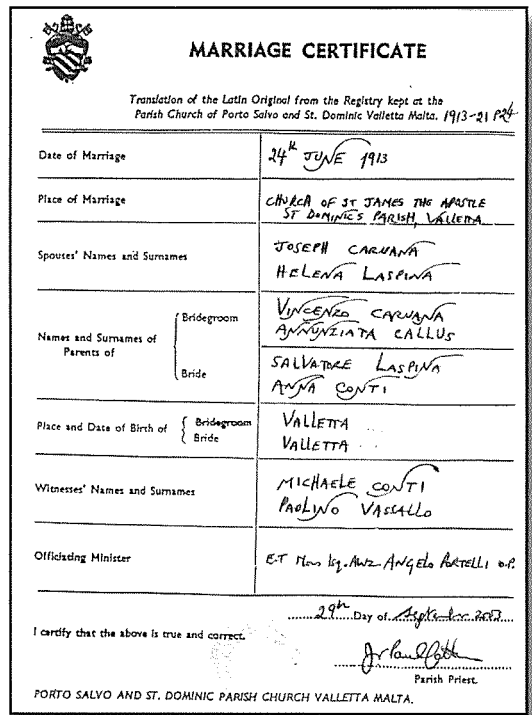 MARRIAGE CERTIFICATE
Translation of the Latin Original from the Registry kept at the
Parish Church of Porto Salvo and St. Dominic Valletta Malta. 1913-21 P24
Date of Marriage
24th JUNE 1913
Place of Marriage
CHURCH OF ST JAMES THE APOSTLE
ST DOMINIC'S PARISH, VALLETTA
Spouses' Names and Surnames
JOSEPH CARUANA
HELENA LASPINA
Names and Surnames of
Parents of
Bridegroom
VINCENZO CARUANA
ANNUNZIATA CALLUS
Bride
SALVATORE LASPINA
ANNA CONTI
Place and Date of Birth of
Bridegroom
VALLETTA ...
Bride
VALLETTA ...
Witnesses' Names and Surnames
MICHAELE CONTI
PAOLINO VASSALLO
Officiating Minister
E.T ANGELO PORTELLI O.P.
29th Day of September 2003
I certify that the above is true and correct.
Parish Priest.
PORTO SALVO AND ST. DOMINIC PARISH CHURCH VALLETTA MALTA.